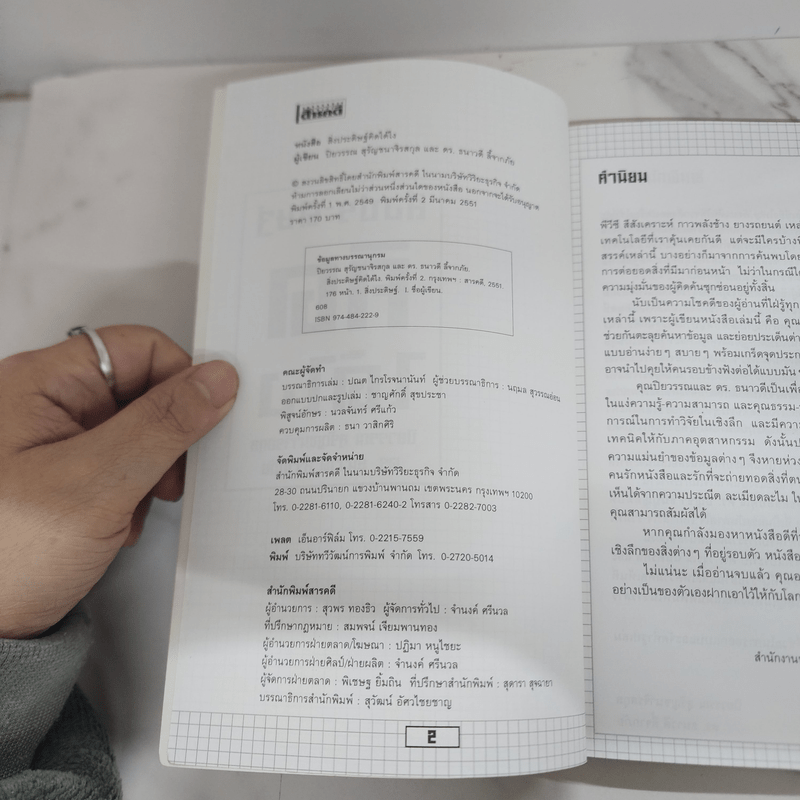 สารคดี
หนังสือ สิ่งประดิษฐ์คิดได้ไง
ผู้เขียน ปิยวรรณ สุรัญชนาจิรสกุล และ ดร. ธนาวดี ลี้จากภัย
© สงวนลิขสิทธิ์โดยสำนักพิมพ์สารคดี ในนามบริษัทวิริยะธุรกิจ จำกัด
ห้ามการลอกเลียนไม่ว่าส่วนหนึ่งส่วนใดของหนังสือ นอกจากจะได้รับอนุญาต
พิมพ์ครั้งที่ 1 พ.ค. 2549 พิมพ์ครั้งที่ 2 มีนาคม 2551
ราคา 170 บาท
ข้อมูลทางบรรณานุกรม
ปิยวรรณ สุรัญชนาจิรสกุล และ ดร. ธนาวดี ลี้จากภัย.
สิ่งประดิษฐ์คิดได้ไง. พิมพ์ครั้งที่ 2. กรุงเทพฯ : สารคดี, 2551.
176 หน้า. 1. สิ่งประดิษฐ์. I. ชื่อผู้เขียน.
608
ISBN 974-484-222-9
คณะผู้จัดทำ
บรรณาธิการเล่ม : ปณต ไกรโรจนานันท์ ผู้ช่วยบรรณาธิการ : นฤมล สุวรรณอ่อน
ออกแบบปกและรูปเล่ม : ชาญศักดิ์ สุขประชา
พิสูจน์อักษร : นวลจันทร์ ศรีแก้ว
ควบคุมการผลิต : ธนา วาสิกศิริ
จัดพิมพ์และจัดจำหน่าย
สำนักพิมพ์สารคดี ในนามบริษัทวิริยะธุรกิจ จำกัด
28-30 ถนนปรินายก แขวงบ้านพานถม เขตพระนคร กรุงเทพฯ 10200
โทร. 0-2281-6110, 0-2281-6240-2 โทรสาร 0-2282-7003
เพลต เอ็นอาร์ฟิล์ม โทร. 0-2215-7559
พิมพ์ บริษัททวีวัฒน์การพิมพ์ จำกัด โทร. 0-2720-5014
สำนักพิมพ์สารคดี
ผู้อำนวยการ : สุวพร ทองธิว ผู้จัดการทั่วไป : จำนงค์ ศรีนวล
ที่ปรึกษากฎหมาย : สมพจน์ เจียมพานทอง
ผู้อำนวยการฝ่ายตลาด/โฆษณา : ปฏิมา หนูไชยะ
ผู้อำนวยการฝ่ายศิลป์/ฝ่ายผลิต : จำนงค์ ศรีนวล
ผู้จัดการฝ่ายตลาด : พิเชษฐ ยิ้มถิน ที่ปรึกษาสำนักพิมพ์ : สุดารา สุจฉายา
บรรณาธิการสำนักพิมพ์ : สุวัฒน์ อัศวไชยชาญ
2
คำนิยม
พีวีซี สีสังเคราะห์ กาวพลังช้าง ยางรถยนต์
เทคโนโลยีที่เราคุ้นเคยกันดี แต่จะมีใครบ้าง
สรรค์เหล่านี้ บางอย่างก็มาจากการค้นพบโดย
การต่อยอดสิ่งที่มีมาก่อนหน้า ไม่ว่าในกรณี
ความมุ่งมั่นของผู้คิดค้นซุกซ่อนอยู่ทั้งสิ้น
นับเป็นความโชคดีของผู้อ่านที่ใฝ่รู้ทุก
เหล่านี้ เพราะผู้เขียนหนังสือเล่มนี้ คือ คุณ
ช่วยกันตะลุยค้นหาข้อมูล และย่อยประเด็นต่าง
แบบอ่านง่ายๆ สบายๆ พร้อมเกร็ดจุดประ
อาจนำไปคุยให้คนรอบข้างฟังต่อได้แบบมันๆ
คุณปิยวรรณและ ดร. ธนาวดีเป็นเพื่อ
ในแง่ความรู้-ความสามารถ และคุณธรรม-
การณ์ในการทำวิจัยในเชิงลึก และมีความ
เทคนิคให้กับภาคอุตสาหกรรม ดังนั้น
ความแม่นยำของข้อมูลต่างๆ จึงหายห่วง
คนรักหนังสือและรักที่จะถ่ายทอดสิ่งที่ตน
เห็นได้จากความประณีต ละเมียดละไม ใน
คุณสามารถสัมผัสได้
หากคุณกำลังมองหาหนังสือดีที่
เชิงลึกของสิ่งต่างๆ ที่อยู่รอบตัว หนังสือ
ไม่แน่นะ เมื่ออ่านจบแล้ว คุณอ
อย่างเป็นของตัวเองฝากเอาไว้ให้กับโลก
สำนักงาน